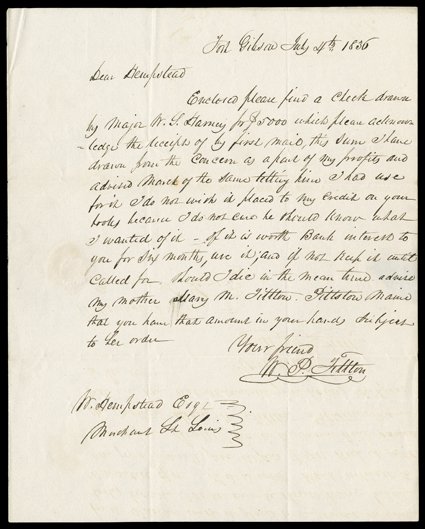 Fort Gibson July 4th 1836
Dear Hempstead
Enclosed please find a check drawn
by Major W. S. Harney for $5000 which please acknow
-ledge the receipt of by first mail, this sum I have
drawn from the Concern as a part of my profits and
advised March of the same telling him I had use
for it I do not wish it placed to my credit on your
books because I do not care he should know what
I wanted of it - If it is worth Bank interest to
you for six months, use it, and if not keep it until
called for. Should I die in the mean time advise
my mother Mary M. Tilton. Pittston Maine
that you have that amount in your hands subject
to her order
Your friend
W. P. Tilton
W. Hempstead Esqr
Merchant St Louis